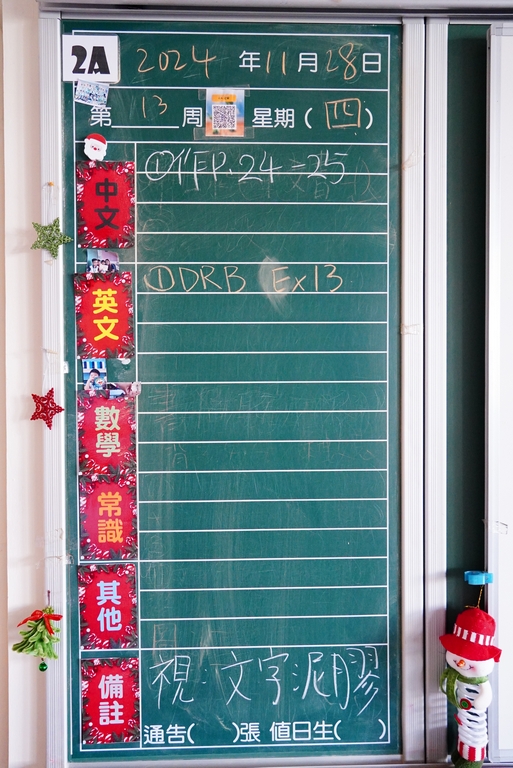 2A
2024年11月28日
第13周 星期(四)
中文
①作P.24-25
英文
①DRB Ex13
數學
常識
其他
備註
視:文字泥膠
通告( )張 值日生( )